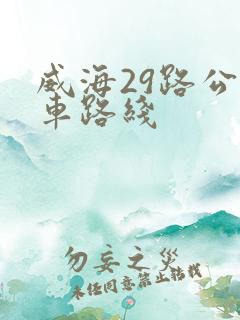 威海29路公
車路綫
勿妄之災
未经同意禁止转载